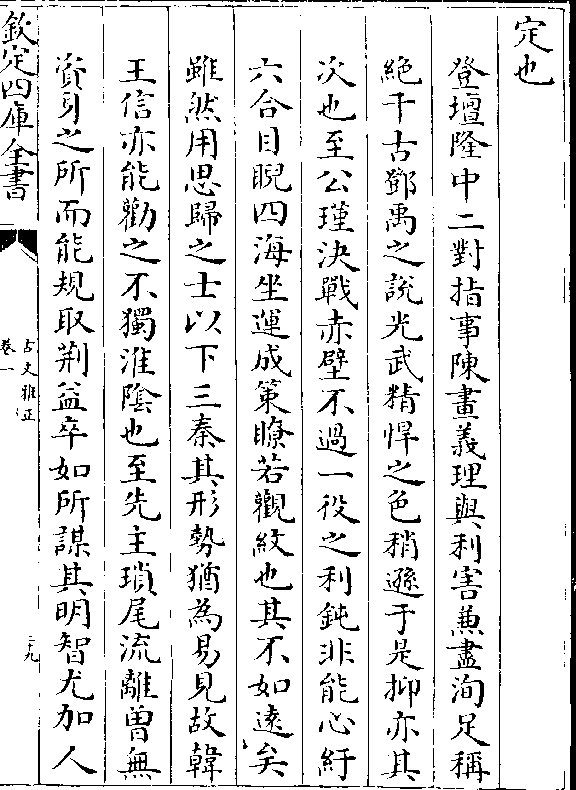 定也
登壇隆中二對指事陳畫義理與利害兼盡洵足稱
絶千古鄧禹之說光武精悍之色稍遜于是抑亦其
次也至公瑾決戰赤壁不過一役之利鈍非能心紆
六合目睨四海坐運成策瞭若觀紋也其不如遠矣
雖然用思歸之士以下三秦其形勢猶為易見故韓
王信亦能勸之不獨淮陰也至先主瑣尾流離曽無
資身之所而能規取荆益卒如所謀其明智尤加人
欽定四庫全書
古文雅正
卷一
二十九